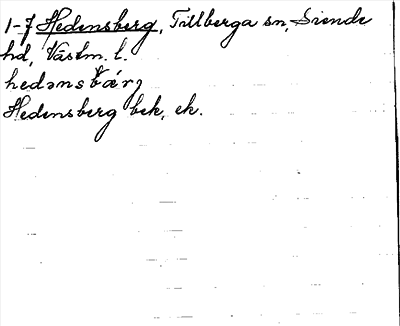 1-7 Hedensberg, Tillberga sn, Siende
hd, Västm. l.
hedəns bær,
Hedensberg bek, ek.